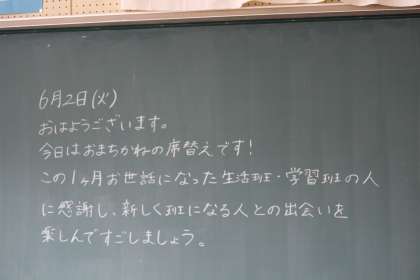 6月2日(火)
おはようございます。
今日はおまちかねの席替えです!
この1ヶ月お世話になった生活班・学習班の人
に感謝し、新しく班になる人との出会いを
楽しんですごしましょう。